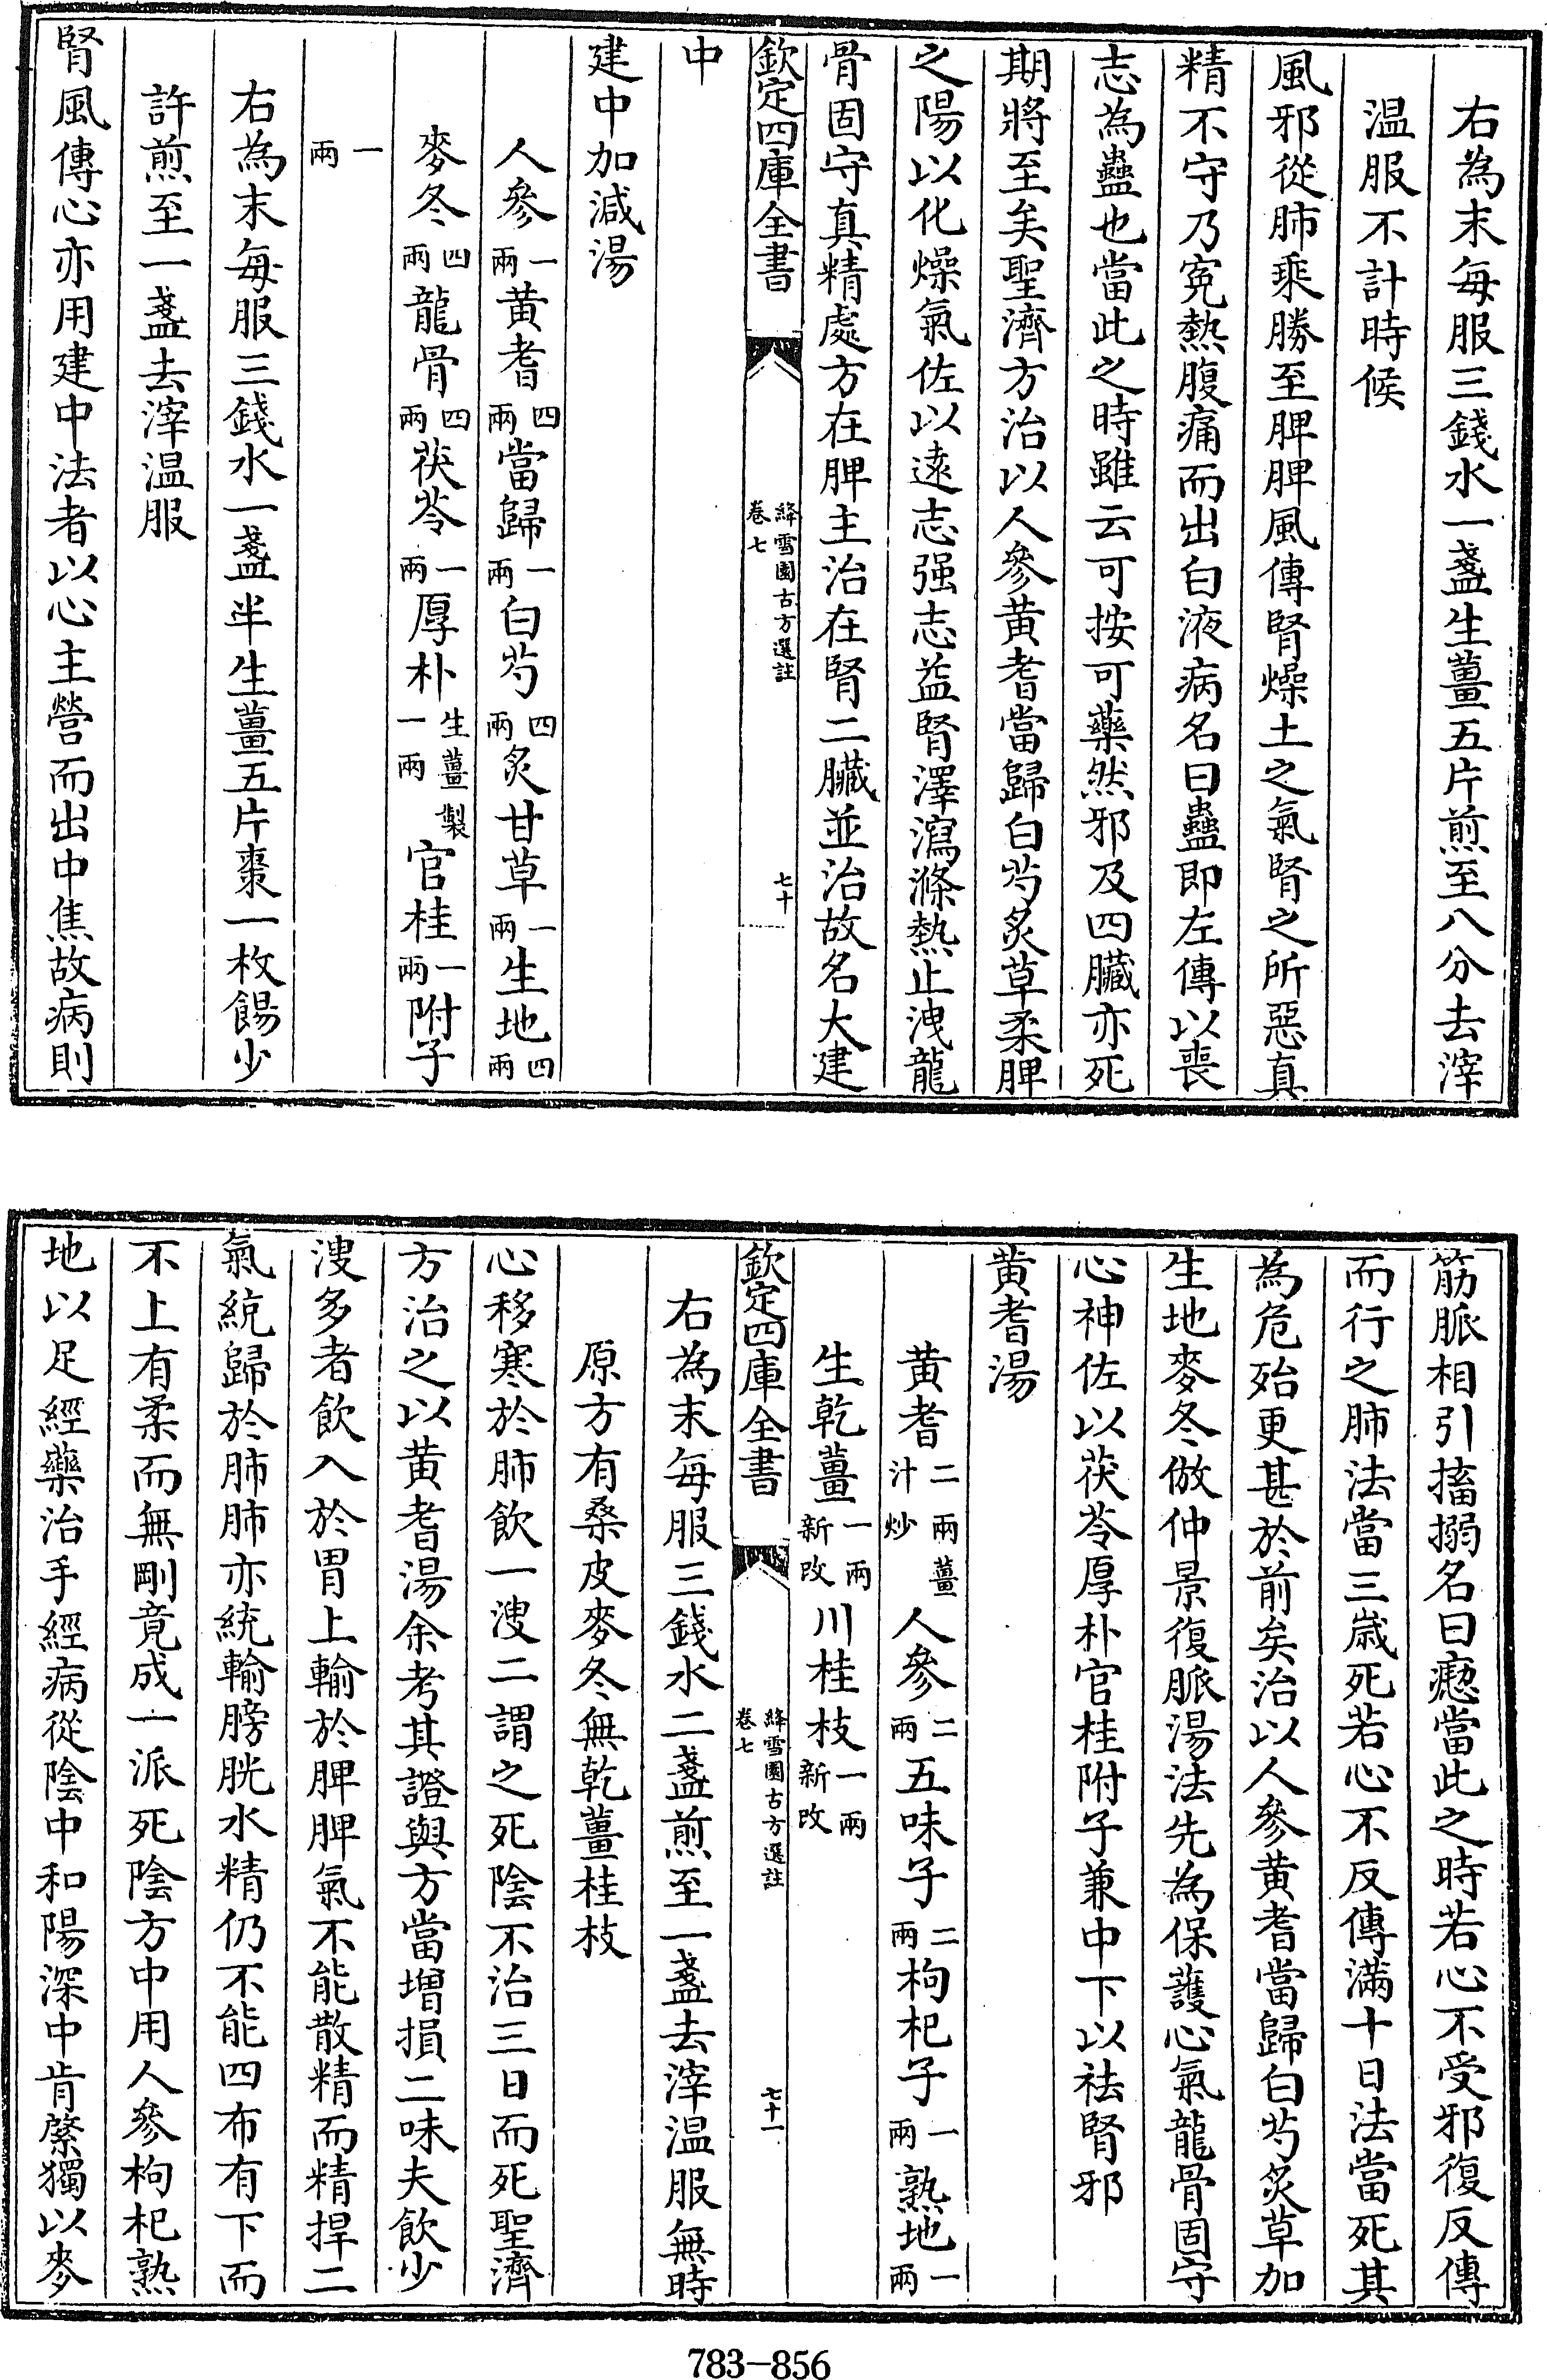 右為末每服三錢水一盞生薑五片煎至八分去滓
温服不計時候
風邪從肺乘勝至脾脾風傳腎燥土之氣腎之所惡真
精不守乃寃熱腹痛而出白液病名曰蠱即左傳以喪
志為蠱也當此之時雖云可按可藥然邪及四臟亦死
期將至矣聖濟方治以人參黄耆當歸白芍炙草柔脾
之陽以化燥氣佐以遠志强志益腎澤瀉滌熱止洩龍
骨固守真精處方在脾主治在腎二臟並治故名大建
欽定四庫全書 絳雪園古方選註 卷七 七十
中
建中加減湯
人參一兩黄耆四兩當歸一兩白芍四兩炙甘草一兩生地四兩
麥冬四兩龍骨四兩茯苓一兩厚朴生薑製一兩官桂一兩附子
一兩
右為末每服三錢水一盞半生薑五片棗一枚餳少
許煎至一盞去滓温服
腎風傳心亦用建中法者以心主營而出中焦故病則
筋脈相引搐搦名曰瘛當此之時若心不受邪復反傳
而行之肺法當三歲死若心不反傳滿十日法當死其
為危殆更甚於前矣治以人參黄耆當歸白芍炙草加
生地麥冬倣仲景復脈湯法先為保護心氣龍骨固守
心神佐以茯苓厚朴官桂附子兼中下以祛腎邪
黄耆湯
黄耆二兩薑汁炒人參二兩五味子二兩枸杞子一兩熟地一兩
生乾薑一兩新改川桂枝一兩新改
欽定四庫全書 絳雪園古方選註 卷七 七十一
右為末每服三錢水二盞煎至一盞去滓温服無時
原方有桑皮麥冬無乾薑桂枝
心移寒於肺飲一溲二謂之死陰不治三日而死聖濟
方治之以黄耆湯余考其證與方當增損二味夫飲少
溲多者飲入於胃上輸於脾脾氣不能散精而精捍二
氣統歸於肺肺亦統輸膀胱水精仍不能四布有下而
不上有柔而無剛竟成一派死陰方中用人參枸杞熟
地以足經藥治手經病從陰中和陽深中肯綮獨以麥
783-856